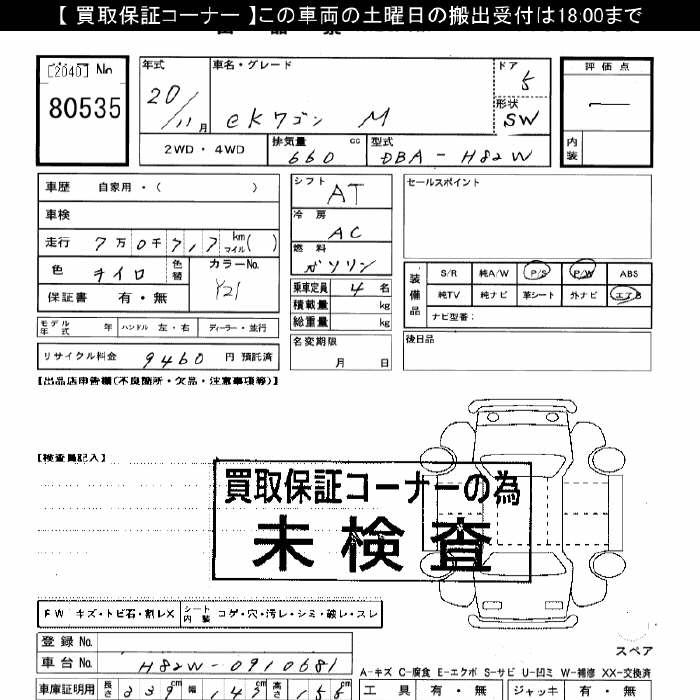 【 買取保証コーナー 】この車両の土曜日の搬出受付は18:00まで
[2040] No
80535
年式
20/11月
車名・グレード
eKワゴン M
ドア
5
形状
SW
評価点
ー
内装
2WD・4WD
排気量 660 cc
型式 DBA-H82W
車歴 自家用・( )
車検
走行 7万0千7,17 km マイル ( )
色 キイロ 色替
カラーNo. Y21
保証書 有・無
シフト AT
冷房 AC
燃料 ガソリン
乗車定員 4 名
積載量 kg
総重量 kg
セールスポイント
装備品
S/R 純A/W P/S P/W ABS
純TV 純ナビ 革シート 外ナビ エアB
ナビ型番:
モデル年式 年 ハンドル 左・右 ディーラー・並行
リサイクル料金 9460 円 預託済
名変期限
月 日
後日品
【出品店申告欄(不良箇所・欠品・注意事項等)】
【検査員記入】
買取保証コーナーの為
未検査
FW キズ・トビ石・割レX シート内装 コゲ・穴・汚レ・シミ・破レ・スレ
登録 No.
車台 No. H82W-0910681
スペア
A-キズ C-腐食 E-エクボ S-サビ U-凹ミ W-補修 XX-交換済
車庫証明用 長さ 339 cm 幅 147 cm 高さ 155 cm
工具 有・無 ジャッキ 有・無